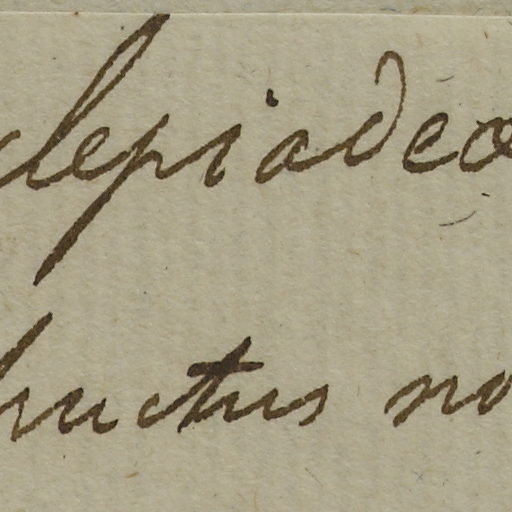 clepiadeæ
fructus no